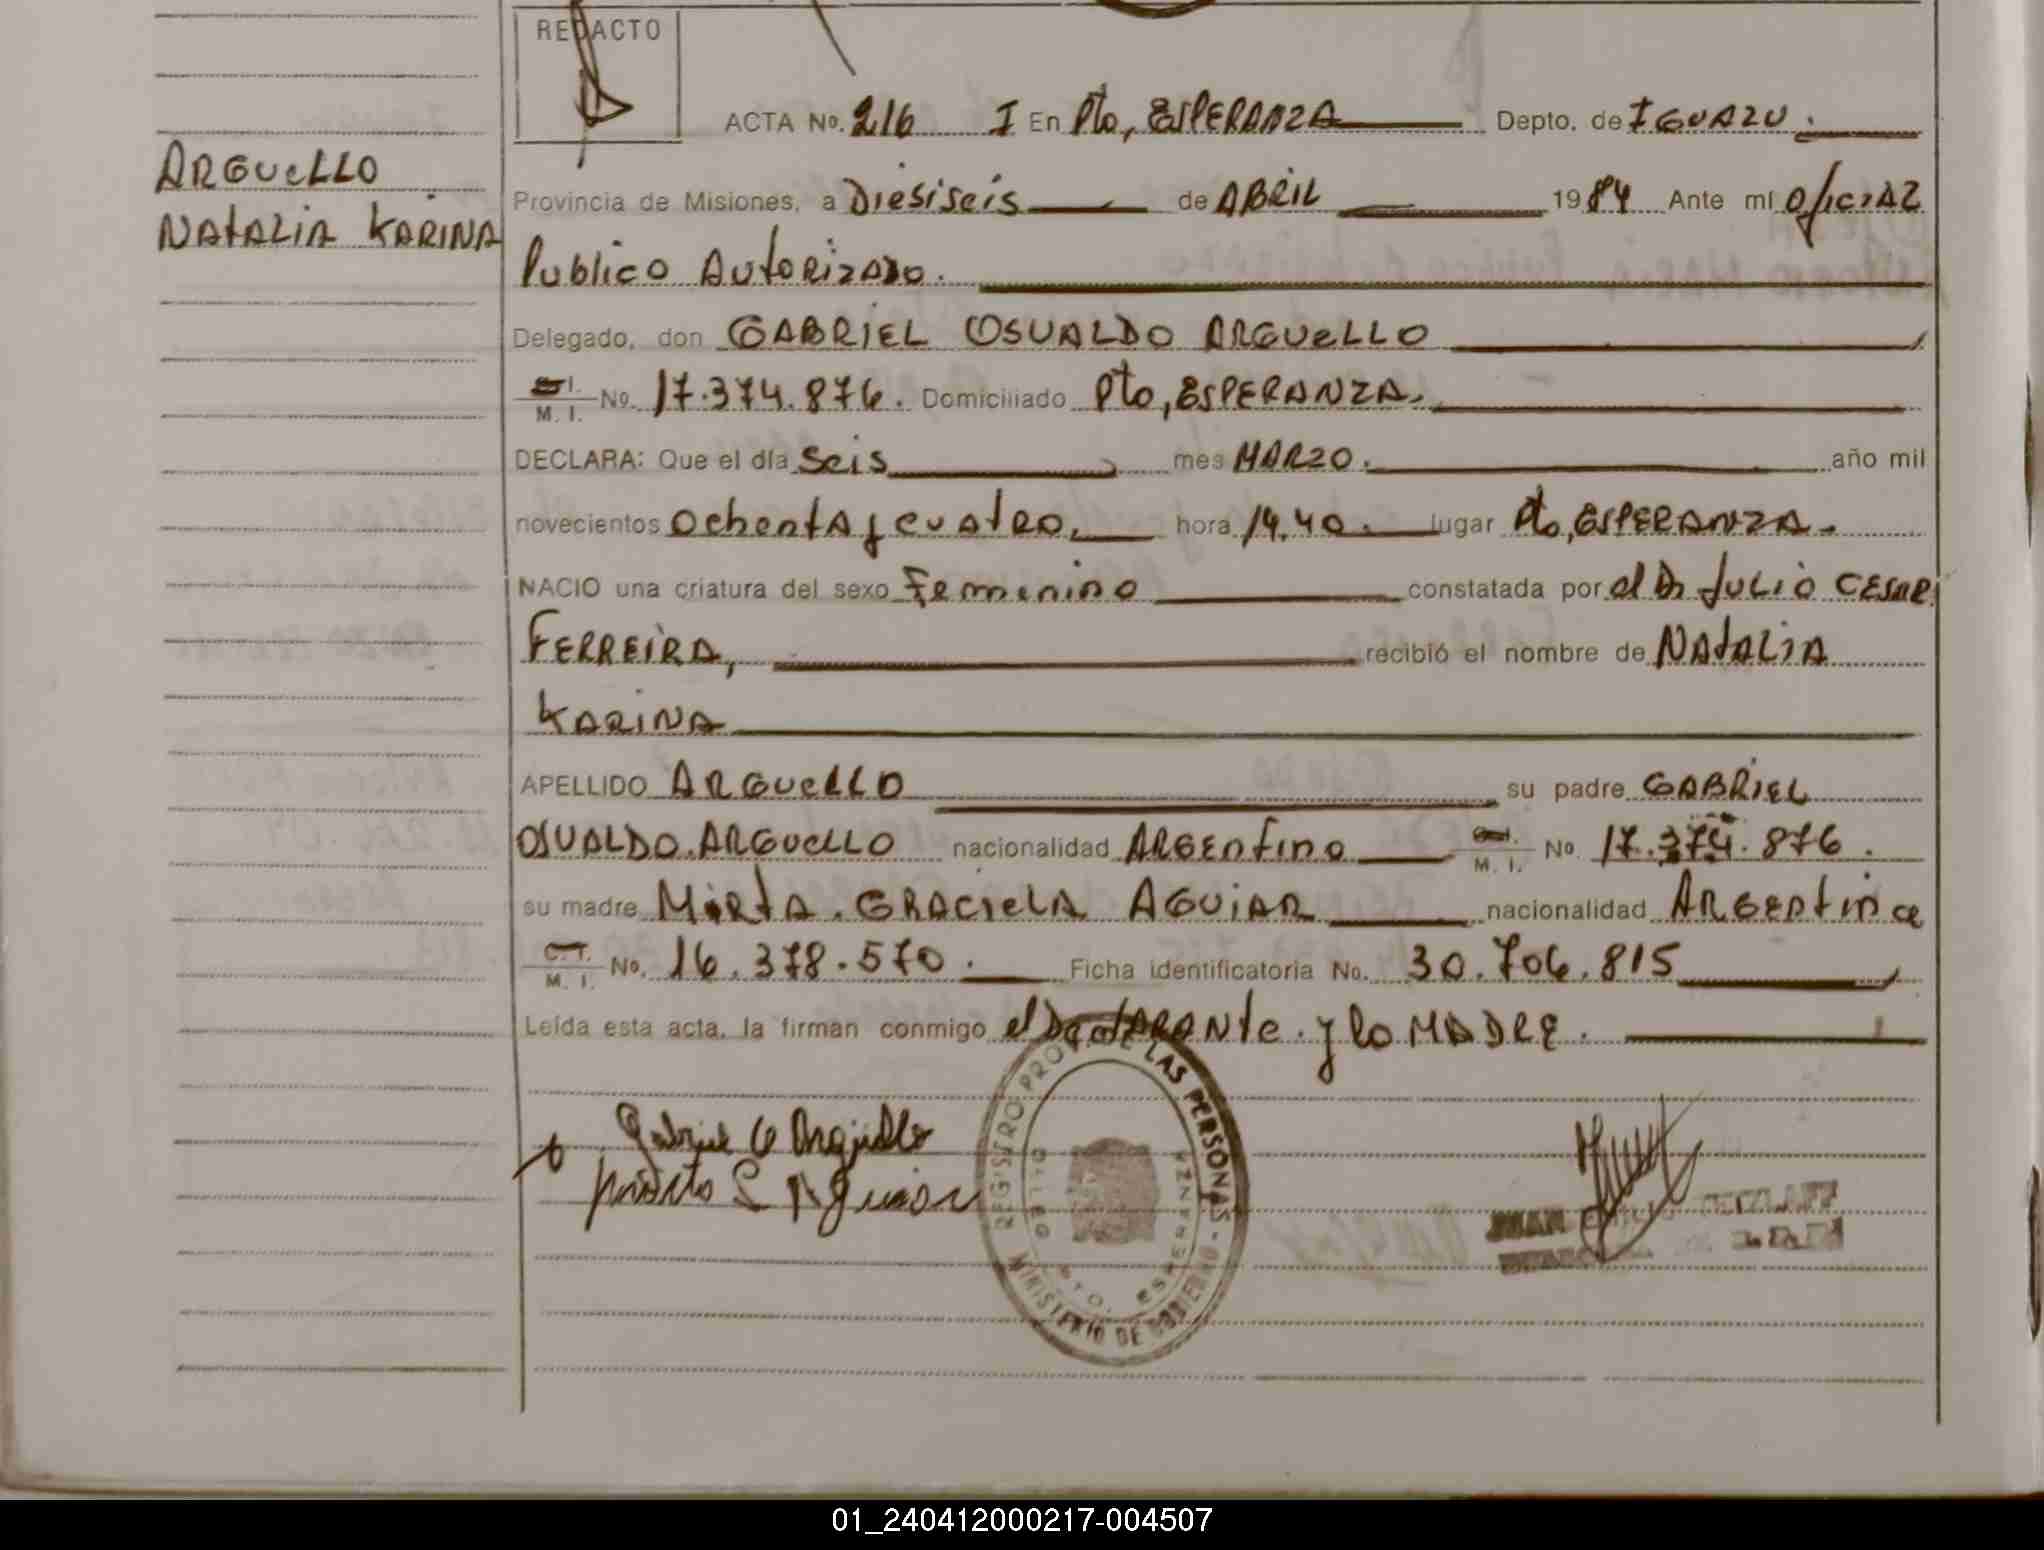 REDACTO
ACTA No. 216 I En Pto, ESPERANZA Depto. de IGUAZU.
ARGUELLO
NATALIA KARINA
Provincia de Misiones, a Diesiseis de ABRIL 1984 Ante mí OficiAL
Publico Autorizado.
Delegado, don GABRIEL OSUALDO ARGUELLO
M. I. No. 17.374.876. Domiciliado Pto, ESPERANZA.
DECLARA: Que el día Seis mes MARZO. año mil
novecientos OchentA y cuatro, hora 14,40. lugar Pto, ESPERANZA.
NACIO una criatura del sexo Femenino constatada por el Dr JULIO CESAR
FERREIRA, recibió el nombre de NATALIA
KARINA
APELLIDO ARGUELLO su padre GABRIEL
OSUALDO. ARGUELLO nacionalidad ARGENtino M. I. No. 17.374.876.
su madre MiRtA. GRACIELA AGUIAR nacionalidad ARGENtina
C. I. M. I. No. 16.378.570. Ficha identificatoria No. 30.706.815
Leída esta acta, la firman conmigo el DeclARANte. y la MADRE.
Gabriel O Arguello
G Aguiar
REGISTRO PROV. DE LAS PERSONAS
PTO. ESPERANZA
MINISTERIO DE GOBIERNO
JUAN
01_240412000217-004507